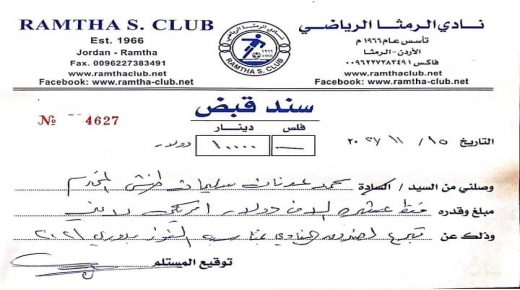 RAMTHA S. CLUB
Est. 1966
Jordan - Ramtha
Fax. 0096227383491
www.ramthaclub.net
Facebook: www.ramtha-club.net
نادي الرمثا الرياضي
RAMTHA S. CLUB
نادي الرمثا الرياضي
تأسس عام ١٩٦٦ م
الأردن - الرمثا
فاكس ٠٠٩٦٢٢٧٣٨٣٤٩١
www.ramthaclub.net
Facebook: www.ramtha-club.net
سند قبض
№ 4627
فلس دينار
١٠٠٠٠ دولار
التاريخ ١٥ / ١١ /
وصلني من السيد / السادة محمد عدنان سليمان المحترم
مبلغ وقدره فقط عشرة الاف دولار امريكي لا غير
وذلك عن تبرع لصندوق النادي بمناسبة الفوز بدوري ٢٠٢١
توقيع المستلم